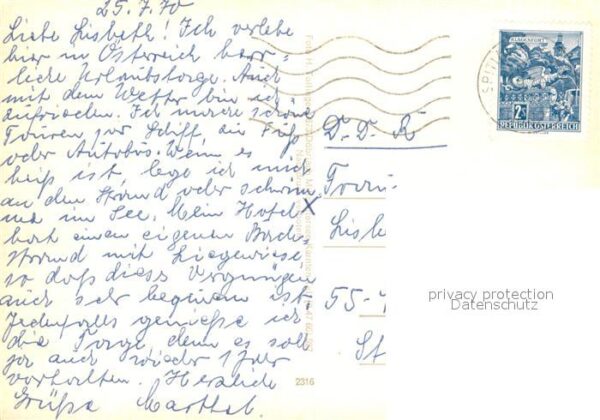 25.7.70
Liebe Lisbeth! Ich verlebe
hier in Österreich herr-
liche Urlaubstage. Auch
mit dem Wetter bin ich
zufrieden. Ich mache schöne
Touren per Schiff, zu Fuß
oder Autobus. Wenn es
heiß ist lege ich mich
an den Strand oder schwim
me im See. Mein Hotel
hat einen eigenen Bade-
strand mit Liegewiese
so daß dieses Vergnügen
auch sehr bequem ist
Jedenfalls genieße ich
die Tage, denn es soll
ja auch wieder 1 Jahr
vorhalten. Herzliche
Grüße
KLAGENFURT
2S
REPUBLIK ÖSTERREICH
SPITT
D.D.R
Lisb
55-
St
X
2316
privacy protection
Datenschutz